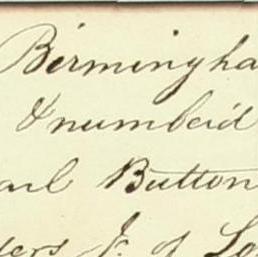 Birmingha
& numbeid
arl Button
ders &. of Lo